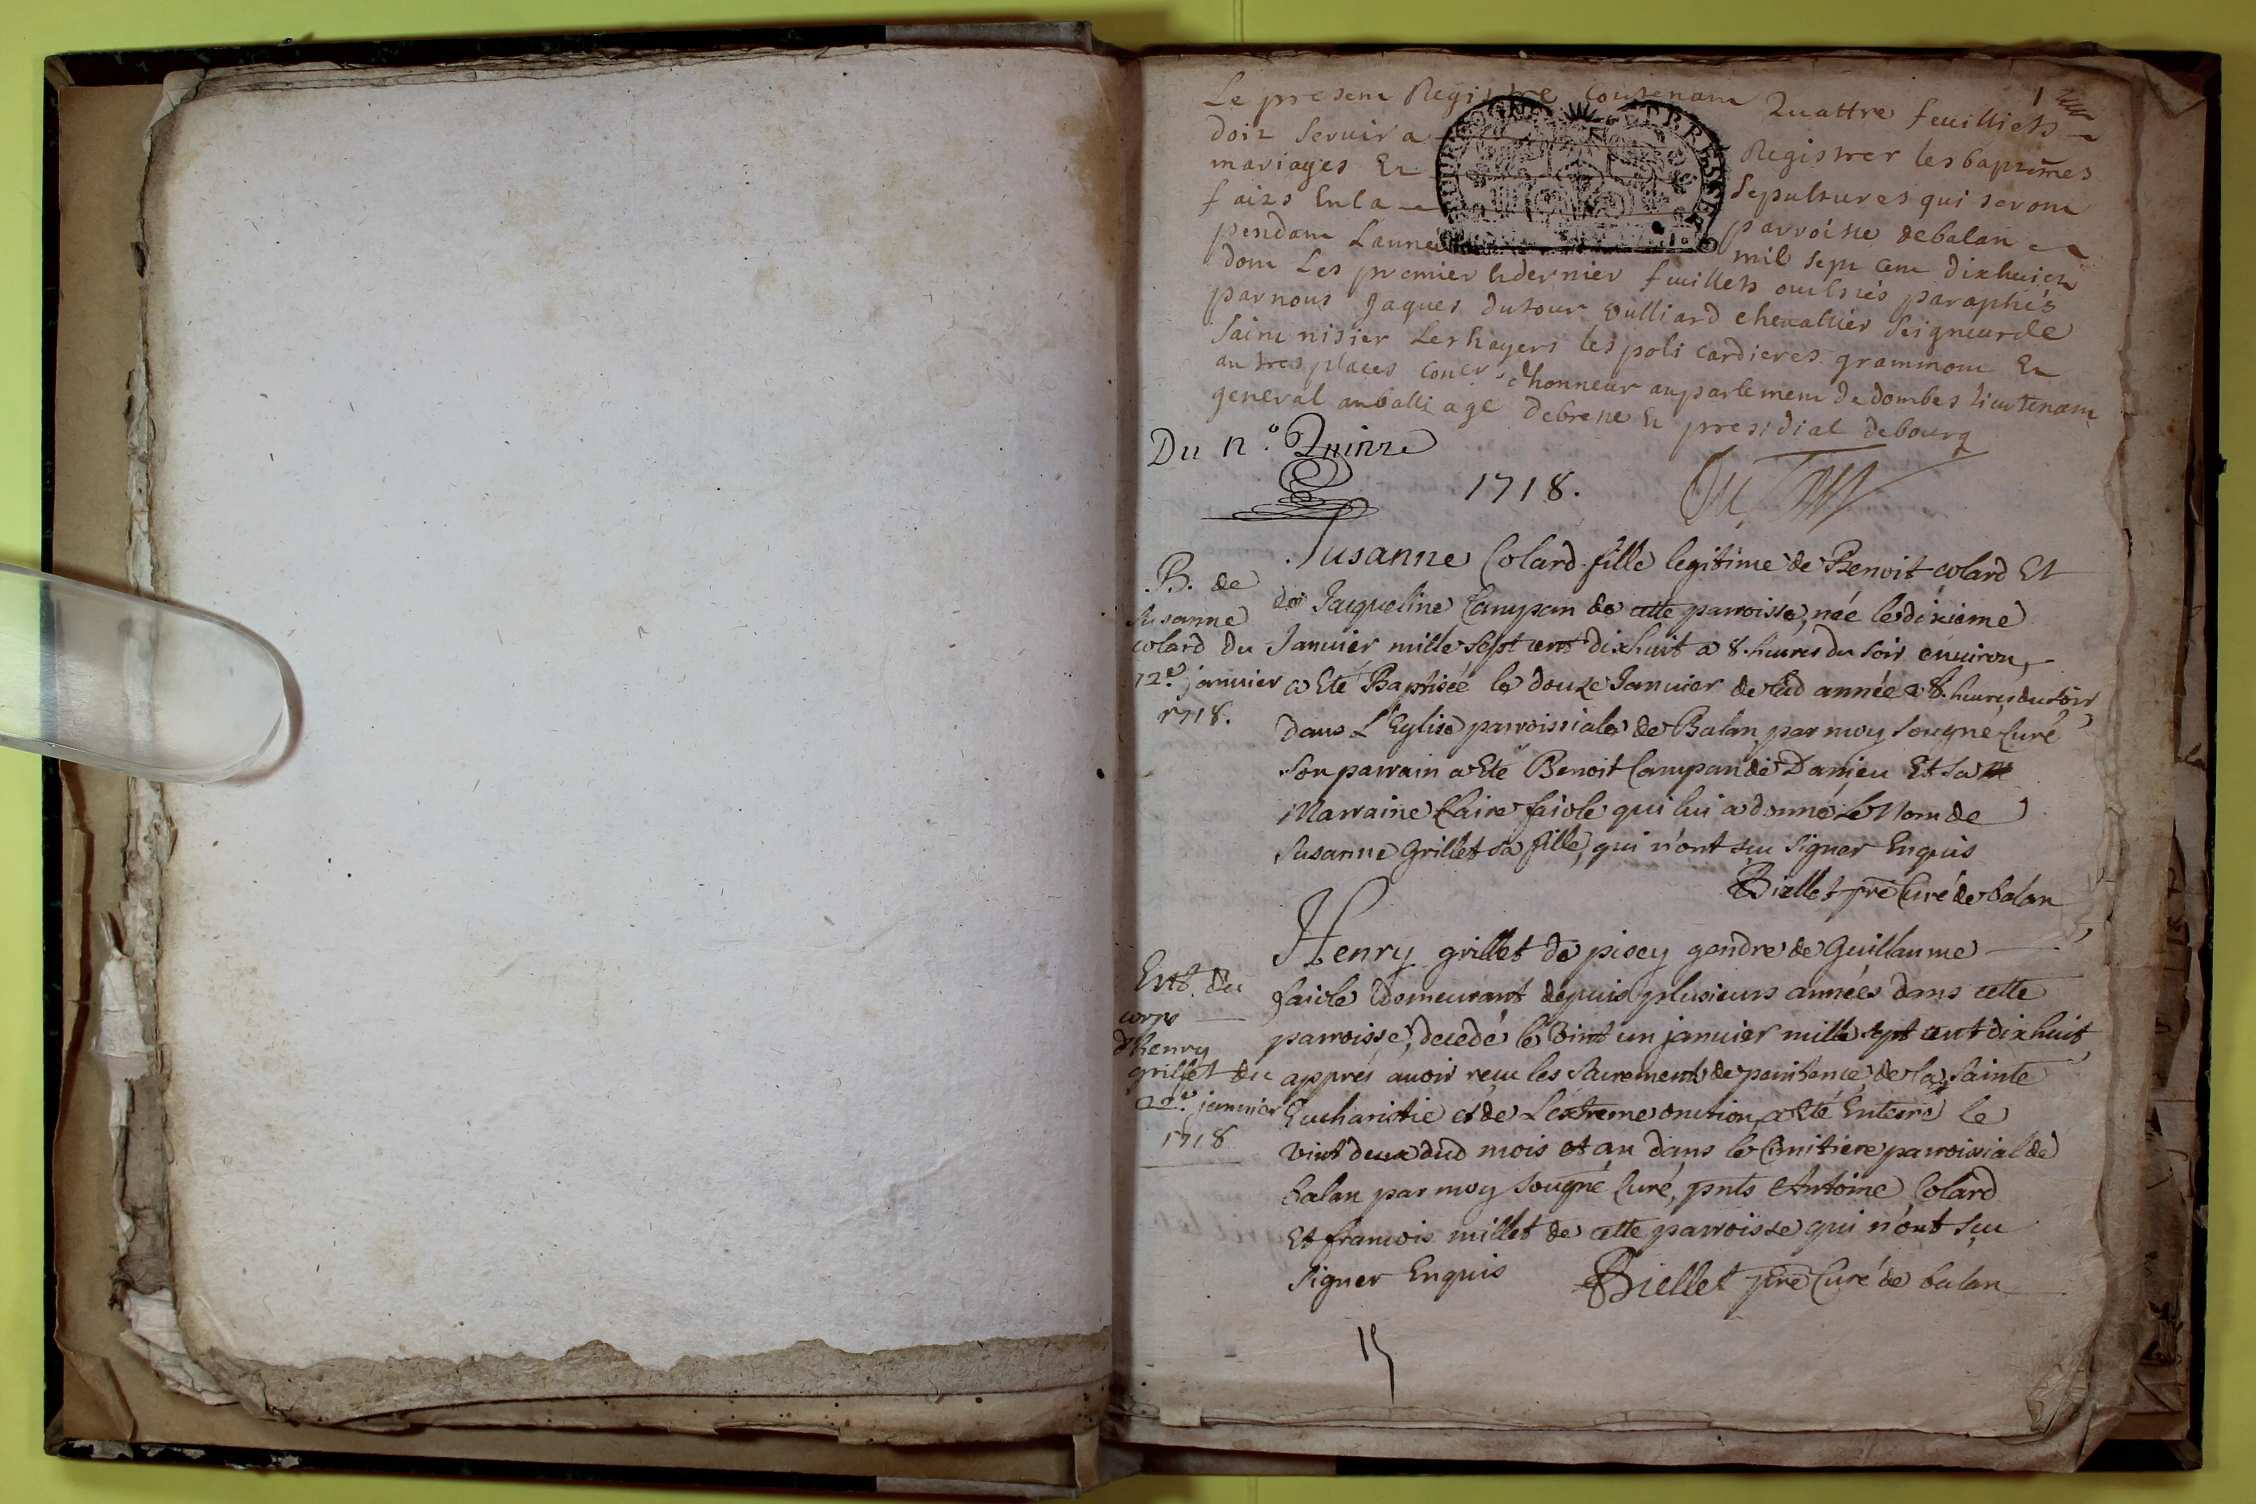 1
Le present Registre Contenant Quattre feuillets
doit servir a Registrer les baptemes
mariages Et Sepultures qui seront
faits En la parroisse de balan
pendant L'année mil sept cent dixhuict
dont Les premier & dernier feuillets ont estés paraphés
par nous Jaques dutour Vulliard chevallier Seigneur de
Saint nisier Les hayers les poli cardieres grammont Et
autres places Coner d'honneur au parlement de dombes lieutenant
general au balliage de bresse Et presidial de bourg
Du n.o Quinze
1718.
B. de
Susanne
colard du
12.e janvier
1718.
Susanne Colard fille legitime de Benoit colard Et
de Jacqueline Campan de cette parroisse, née le dixieme
Janvier mille sept cent dixhuit a 8. heures du soir environ,
a Eté Baptisée le douze Janvier de lad année a 8. heures du soir
dans L'Eglise parroissiale de Balan par moy sougné Curé
son parrain a Eté Benoit Campan de Danjeu Et sa
Marraine Claire faiole qui lui a donné Le Nom de
Susanne Grillet sa fille, qui n'ont sçu signer Enquis
Biellet pre Curé de balan
Ent. du
corps
d'henry
grillet du
22.e janvier
1718
Henry grillet de pisey gendre de Guillaume
faiole demeurant depuis plusieurs années dans cette
parroisse, decedé le vint un janvier mille sept cent dixhuit
appres avoir reçu les Sacrements de penitence de la Sainte
Eucharistie et de L'extreme onction a Eté Enterré le
vint deux dud mois et an dans le Cimitiere parroissial de
balan par moy sougné Curé, pnts Antoine Colard
Et francois millet de cette parroisse qui n'ont sçu
signer Enquis Biellet pre Curé de balan